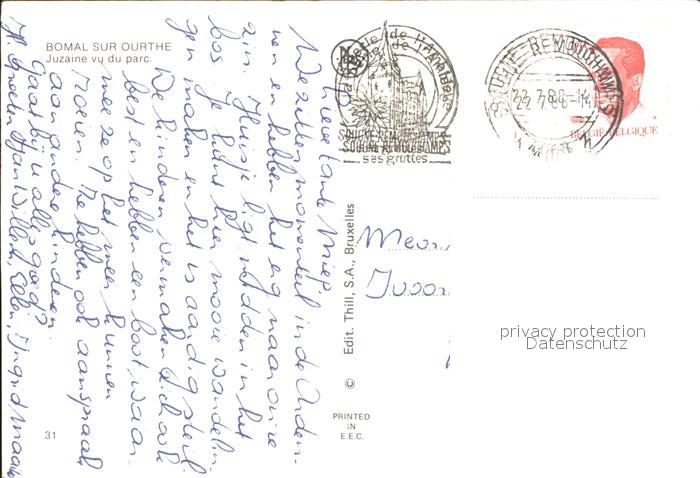 BOMAL SUR OURTHE
Juzaine vu du parc.
Lieve tante Miep,
We zitten momenteel in de Arden-
nen en hebben het erg naar onze
zin. Huisje ligt midden in het
bos. Je kunt hier mooie wandelin-
gen maken en het is aardig steil.
De kinderen vermaken zich ook
best en hebben een boot waar-
mee ze op het meer kunnen
roeien. Ze hebben ook aanspraak
aan andere kinderen.
Gaat bij u alles goed?
H. Groeten Jan Willem, Ellen, Ingrid, Maaike
31
© Edit. Thill, S.A., Bruxelles
PRINTED
IN
E.E.C.
SOUGNE-REMOUCHAMPS
ses grottes
SOUGNE-REMOUCHAMPS
22-7-88-14
BELGIË-BELGIQUE
Mevr.
privacy protection
Datenschutz